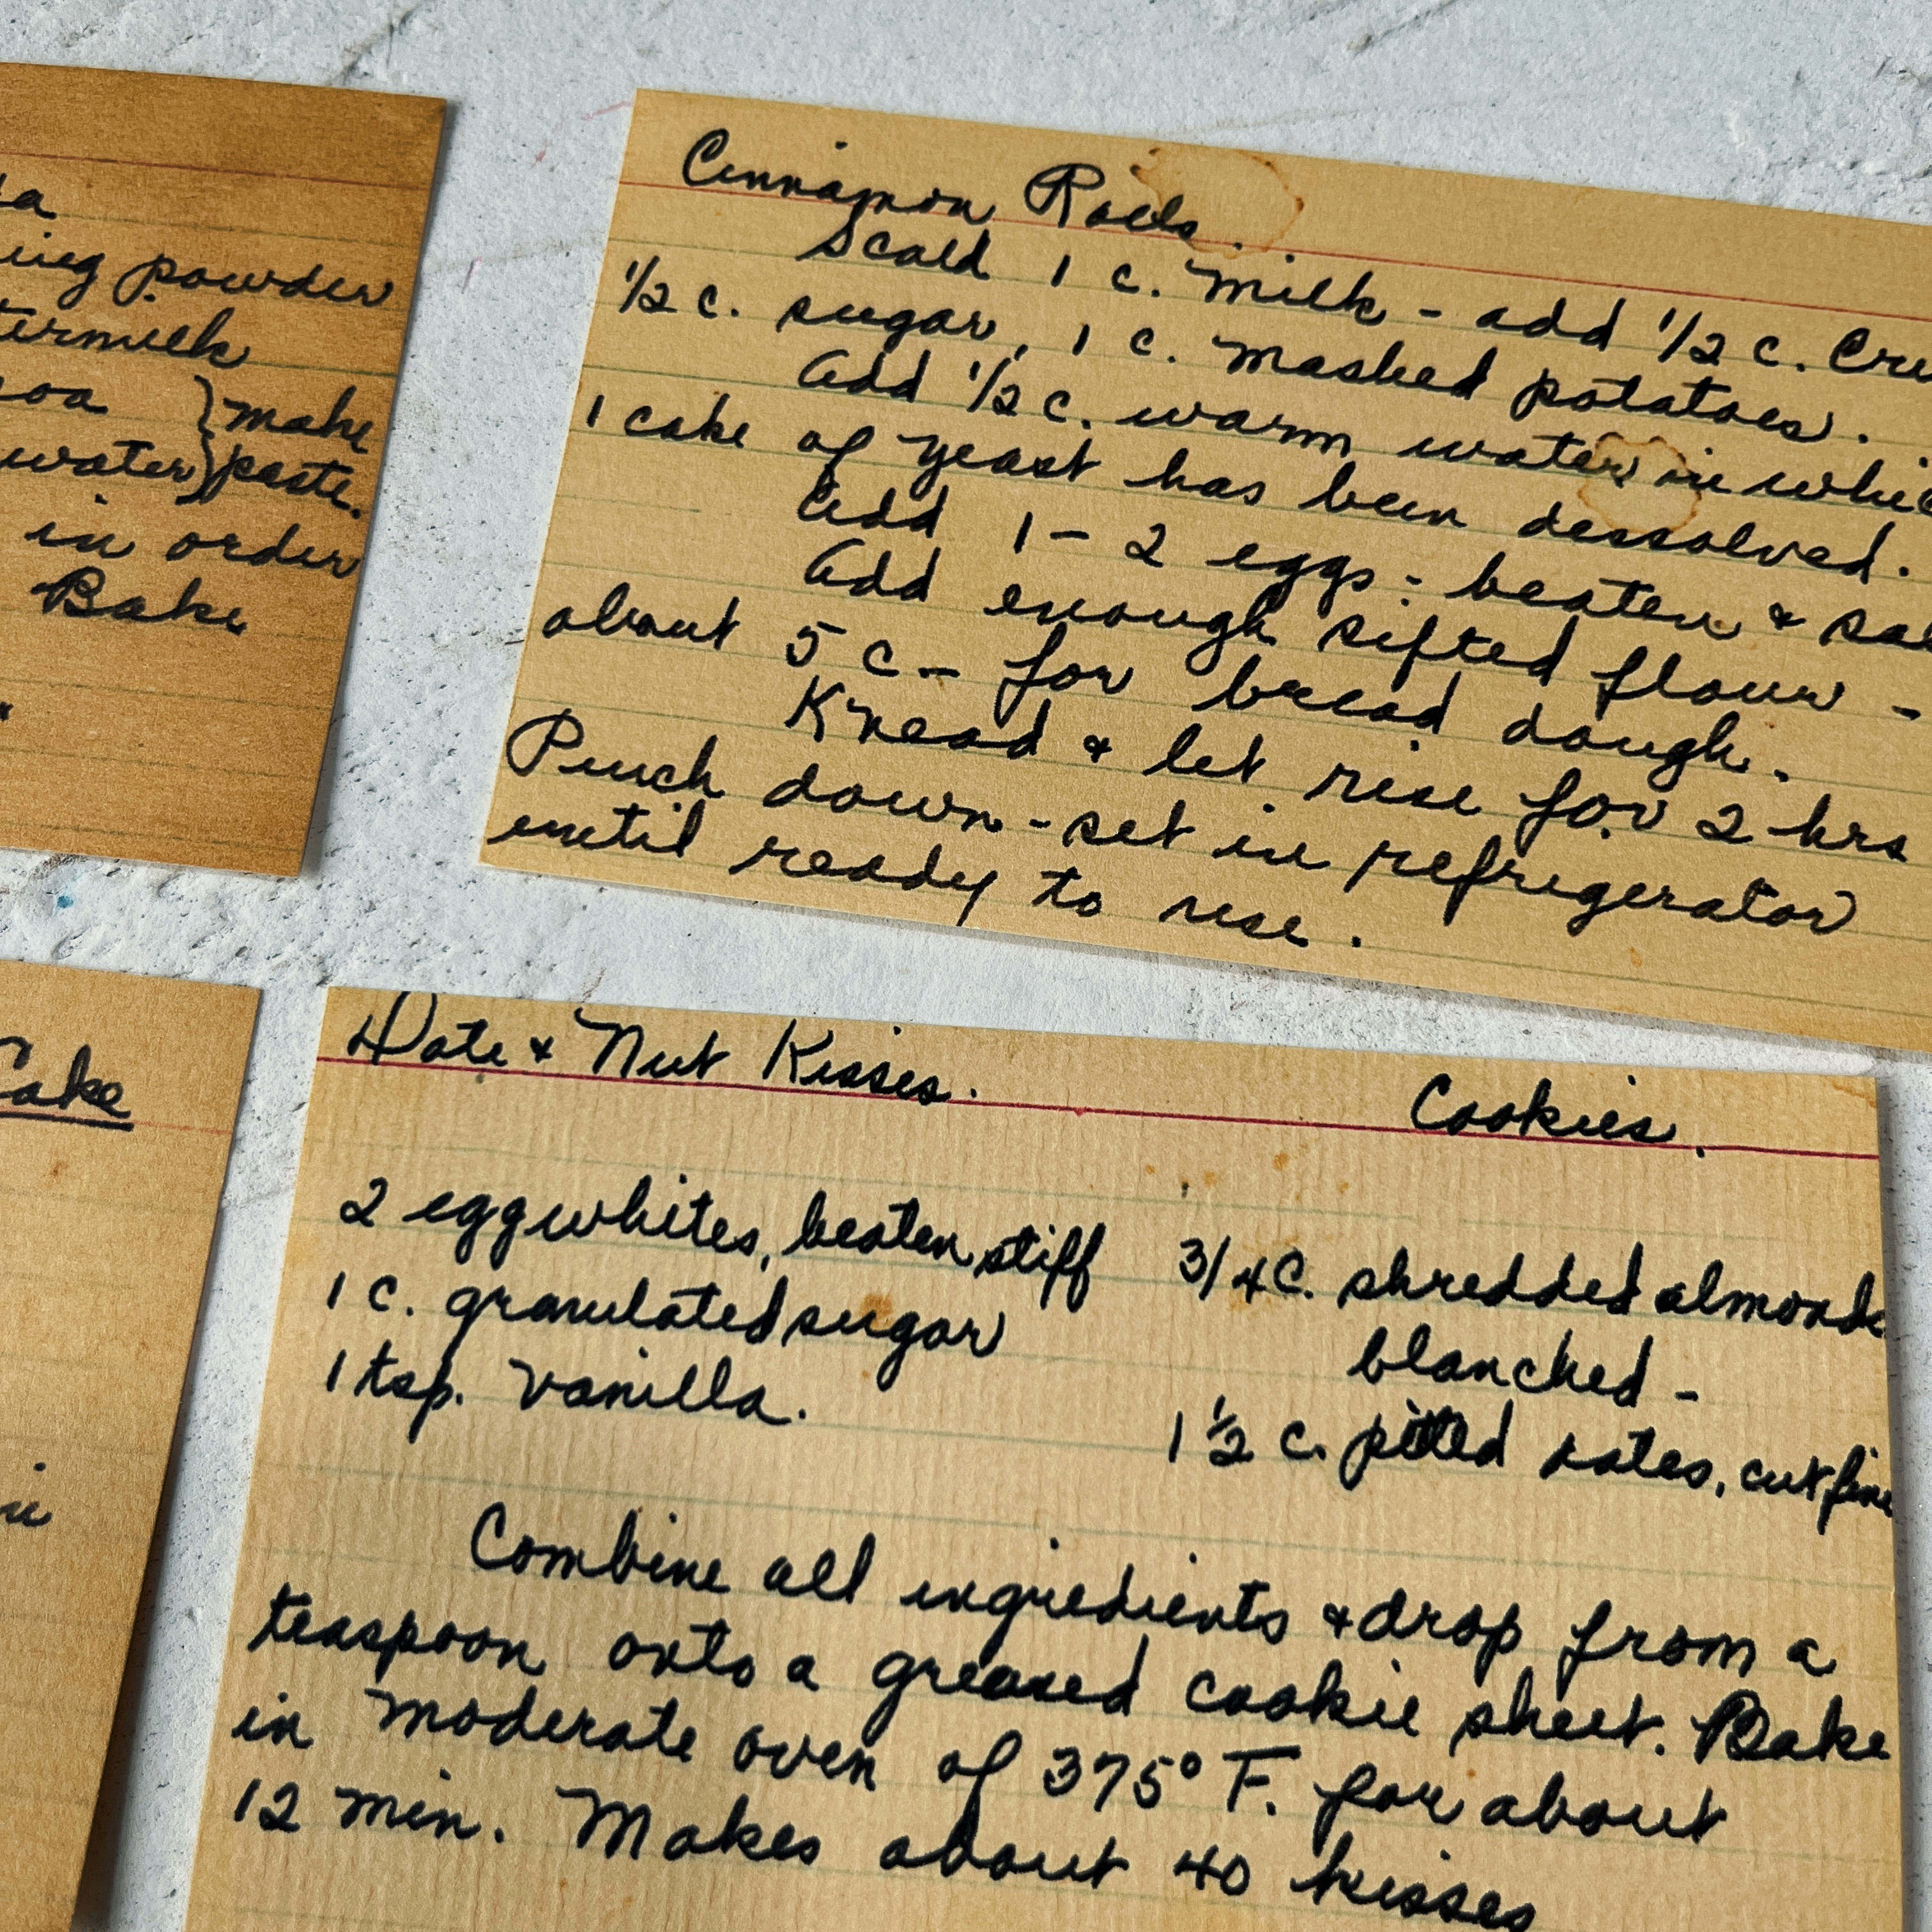 powder
make
water paste.
in order
Bake
Cinnamon Rolls.
Scald 1 c. milk - add 1/2 c.
1/2 c. sugar, 1 c. mashed potatoes.
Add 1/2 c. warm water in
1 cake of yeast has been dessolved.
Add 1-2 eggs - beaten &
Add enough sifted flour -
about 5 c - for bread dough.
Knead & let rise for 2 hrs
Punch down - set in refrigerator
until ready to use.
Cake
Date & Nut Kisses.
Cookies.
2 egg whites, beaten stiff
1 c. granulated sugar
1 tsp. vanilla.
3/4 c. shredded almonds
blanched -
1 1/2 c. pitted dates, cut fine
Combine all ingredients & drop from a
teaspoon onto a greased cookie sheet. Bake
in moderate oven of 375° F. for about
12 min. Makes about 40 kisses